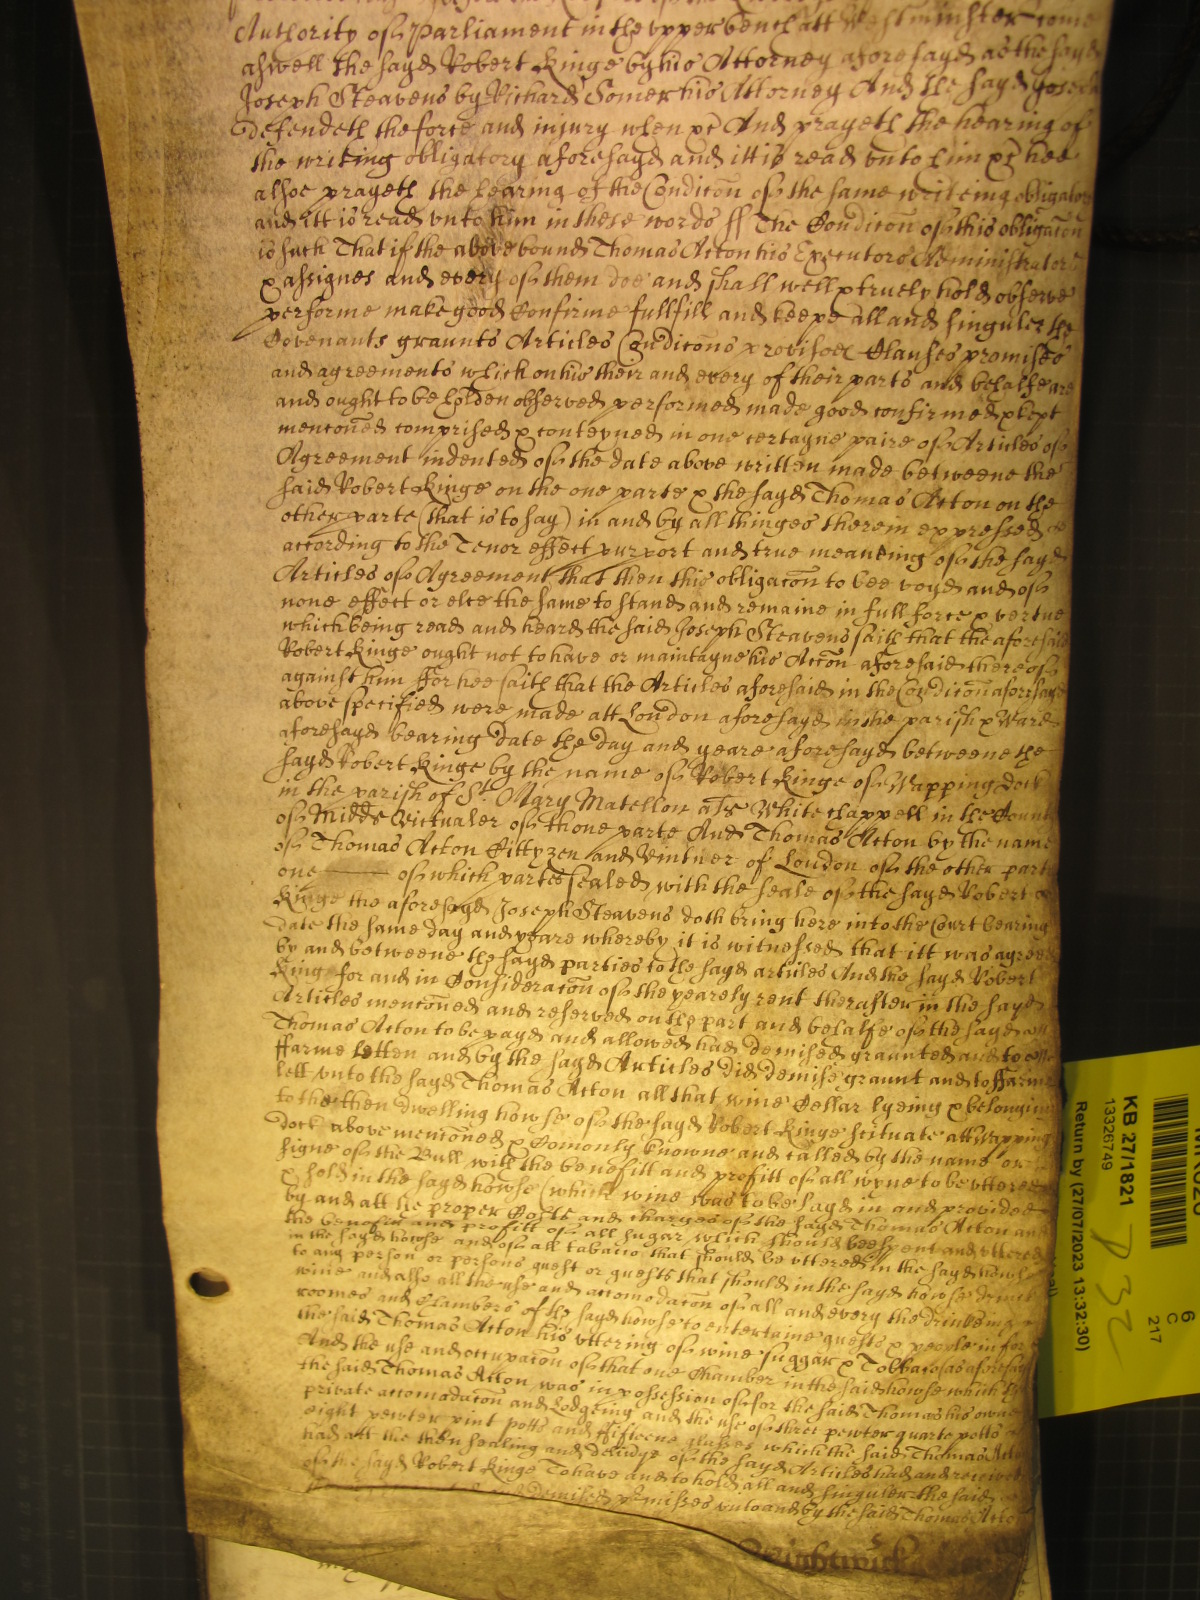 Authority of Parliament in the upper bench att Westminster come
aswell the sayd Robert Kinge by his Attorney aforesayd as the sayd
Joseph Steavens by Richard Somer his Attorney And the sayd Joseph
defendeth the force and injury when &c And prayeth the hearing of
the writing obligatory aforesayd and itt is read unto him &c hee
alsoe prayeth the hearing of the Condicōn of the same writeing obligatory
and itt is read unto him in these words ss The Condicōn of this obligacōn
is such That if the above bound Thomas Acton his Executors Administrators
& assignes and every of them doe and shall well & truely hold observe
performe make good Confirme fullfill and keepe all and singuler the
Covenants graunts Articles Condicōns provisoes Clauses promises
and agreements which on his their and every of their parts and behalfe are
and ought to be holden observed performed made good confirmed & kept
mencōned comprised & conteyned in one certayne paire of Articles of
Agreement indented of the date above written made betweene the
said Robert Kinge on the one parte & the sayd Thomas Acton on the
other parte (that is to say) in and by all thinges therein expressed
according to the Tenor effect purport and true meaneing of the sayd
Articles of Agreement that then this obligacōn to bee voyd and of
none effect or else the same to stand and remaine in full force & vertue
which being read and heard the said Joseph Steavens saith that the aforesaid
Robert Kinge ought not to have or maintayne his Accōn aforesaid thereof
against him ffor hee saith that the Articles aforesaid in the Condicōn aforesayd
above specified were made att London aforesayd in the parish & Ward
aforesayd bearing date the day and yeare aforesayd betweene the
sayd Robert Kinge by the name of Robert Kinge of Wapping Dock
in the parish of St. Mary Matellon als White chappell in the County
of Midds Victualer of thone parte And Thomas Acton by the name
of Thomas Acton Cittyzen and Vintner of London of the other part
one of which partes sealed with the seale of the sayd Robert
Kinge the aforesayd Joseph Steavens doth bring here into the Court bearing
date the same day and yeare whereby it is witnessed that itt was agreed
by and betweene the sayd parties to the sayd articles And the sayd Robert
King for and in Consideracōn of the yearely rent therafter in the sayd
Articles mencōned and reserved on the part and behalfe of the sayd
Thomas Acton to be payd and allowed had demised graunted and to
ffarme letten and by the sayd Articles did demise graunt and to ffarme
lett unto the sayd Thomas Acton all that wine Cellar lyeing & belonging
to the then dwelling howse of the sayd Robert Kinge scituate att Wapping
dock above mencōned & Comonly knowne and called by the name or
signe of the Bull with the benefitt and profitt of all wyne to be uttered
& sold in the sayd howse (which wine was to be layd in and provided
by and att the proper Costs and charges of the sayd Thomas Acton and
the benefitt and profitt of all sugar which should bee spent and uttered
in the sayd howse and of all tabacco that should be uttered in the sayd howse
to any person or persons guest or guests that should in the sayd howse drinck
wine and alsoe all the use and accomodacōn of all and every the drinkeing
roomes and chambers of the sayd howse to entertaine guests & people in for
the said Thomas Acton his uttering of wine suggar & Tobbaco as aforesayd
And the use and occupacōn of that one Chamber in the said howse which
the said Thomas Acton was in possession of for the said Thomas his owne
private accomodacōn and Lodgeing and the use of three pewter quarte potts
eight pewter pint potts and fifteene glasses which the said Thomas Acton
had att the then sealing and delivrye of the sayd Articles had and received
of the sayd Robert Kinge To have and to hold all and singuler the said
demised premisses unto and by the said Thomas Acton
Wightwick
KB 27/1821
13326749
Return by (27/07/2023 13:32:30)
6
C
217
P 32